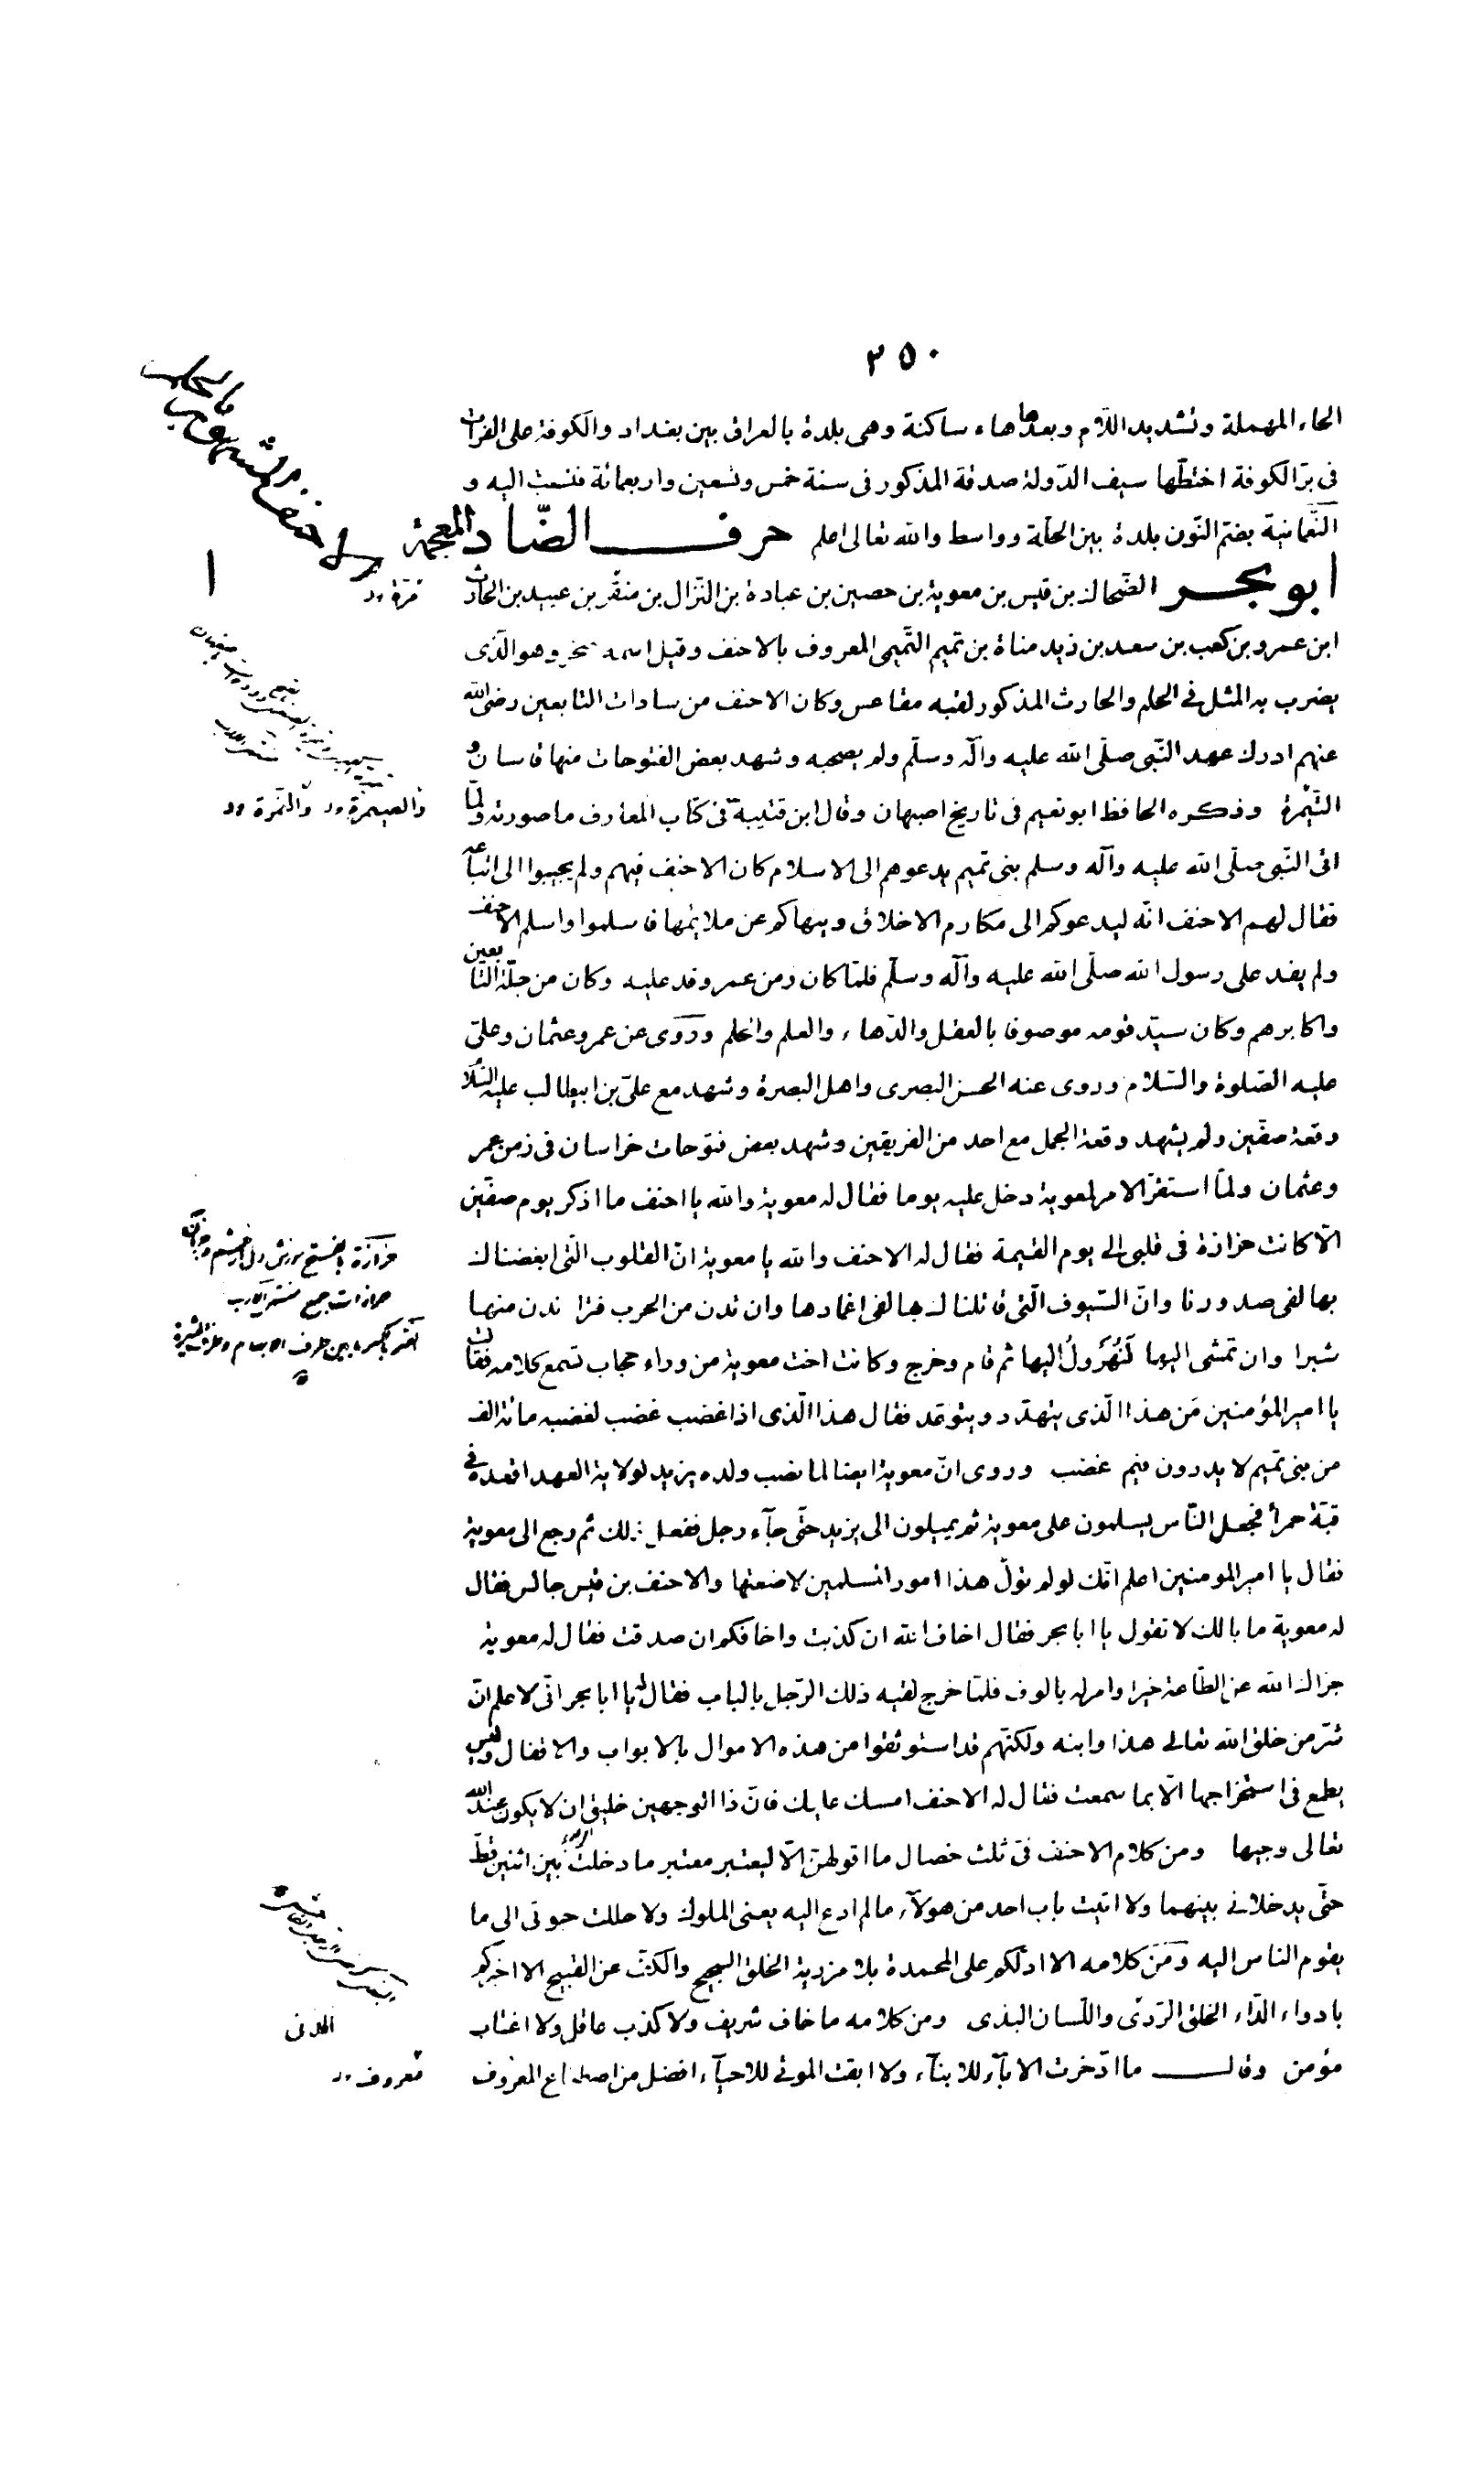 ٣٥٠
الحاء المهملة وتشديد اللّام وبعدها هاء ساكنة وهى بلدة بالعراق بين بغداد والكوفة على الفرات
فى برّ الكوفة اختطّها سيف الدّولة صدقة المذكور فى سنة خمس وتسعين واربعمائة فنسبت اليه و
النّعمانيّة بضمّ النّون بلدة بين الحلّة وواسط والله تعالى اعلم حرف الضّاد المعجمة
ابو بحر الضّحاك بن قيس بن معوية بن حصين بن عبادة بن النزال بن منقر بن عبيد بن الحارث
ابن عمرو بن كعب بن سعد بن زيد مناة بن تميم التّميمى المعروف بالاحنف وقيل اسمه صخر وهو الّذى
يضرب به المثل فى الحلم والحارث المذكور لقبه مقاعس وكان الاحنف من سادات التابعين رضى الله
عنهم ادرك عهد النّبى صلّى الله عليه وآله وسلّم ولم يصحبه وشهد بعض الفتوحات منها قاسان و
التّيمرة وذكره الحافظ ابو نعيم فى تاريخ اصبهان وقال ابن قتيبة فى كتاب المعارف ما صورته ولمّا
اتى النّبى صلّى الله عليه وآله وسلم بنى تميم يدعوهم الى الاسلام كان الاحنف فيهم ولم يجيبوا الى اتباعه
فقال لهم الاحنف انّه ليدعوكم الى مكارم الاخلاق وينهاكم عن ملائمها فاسلموا واسلم الاحنف
ولم يفد على رسول الله صلّى الله عليه وآله وسلّم فلمّا كان زمن عمر وفد عليه وكان من جلّة التّابعين
واكابرهم وكان سيّد قومه موصوفا بالعقل والدّهاء والعلم والحلم وروى عن عمر وعثمان وعلىّ
عليه الصّلوة والسّلام وروى عنه الحسن البصرى واهل البصرة وشهد مع علىّ بن ابيطالب عليه السّلام
وقعة صفّين ولم يشهد وقعة الجمل مع احد من الفريقين وشهد بعض فتوحات خراسان فى زمن عمر
وعثمان ولمّا استقرّ الامر لمعوية دخل عليه يوما فقال له معوية والله يا احنف ما اذكر يوم صفّين
الّا كانت حزازة فى قلبى الى يوم القيمة فقال له الاحنف والله يا معوية انّ القلوب الّتى ابغضناك
بها لفى صدورنا وانّ السّيوف الّتى قاتلناك بها لفى اغمادها وان تدن من الحرب فترا ندن منها
شبرا وان تمشى اليها لنُهَرْوِلُ اليها ثم قام وخرج وكانت اخت معوية من وراء حجاب تسمع كلامه فقالت
يا امير المؤمنين مَن هذا الّذى يتهدّد ويتوعّد فقال هذا الّذى اذا غضب غضب لغضبه مائة الف
من بنى تميم لا يدرون فيم غضب وروى انّ معوية ايضا لما نصب ولده يزيد لولاية العهد اقعده فى
قبّة حمرآ فجعل النّاس يسلمون على معوية ثم يميلون الى يزيد حتّى جآء رجل ففعل ذلك ثم رجع الى معوية
فقال يا امير المومنين اعلم انّك لو لم تولّ هذا امور المسلمين لاضعتها والاحنف بن قيس جالس فقال
له معوية ما بالك لا تقول يا ابا بحر فقال اخاف الله ان كذبت واخافكم ان صدقت فقال له معوية
جزاك الله عن الطّاعة خيرا وامر له بالوف فلمّا خرج لقيه ذلك الرّجل بالباب فقال له يا ابا بحر انّى لاعلم انّ
شرّ من خلق الله تعالى هذا وابنه ولكنّهم قد استوثقوا من هذه الاموال بالابواب والاقفال وليس
يطمع فى استخراجها الّا بما سمعت فقال له الاحنف امسك عليك فانّ ذا الوجهين خليق ان لا يكون عند الله
تعالى وجيها ومن كلام الاحنف فىّ ثلث خصال ما اقولهنّ الّا ليعتبر معتبر ما دخلت بين اثنين قطّ
حتّى يدخلانى بينهما ولا اتيت باب احد من هولآء ما لم ادع اليه يعنى الملوك ولا حللت حبوتى الى ما
يقوم الناس اليه ومن كلامه الا ادلّكم على المحمدة بلا مزرية الخلق السجيح والكفّ عن القبيح الا اخبركم
بادواء الدّاء الخلق الرّدىّ واللّسان البذى ومن كلامه ما خاف شريف ولا كذب عاقل ولا اغتاب
مؤمن وقال ما ادّخرت الابآء للابنآء ولا ابقت الموتى للاحيآء افضل من اصطناع المعروف